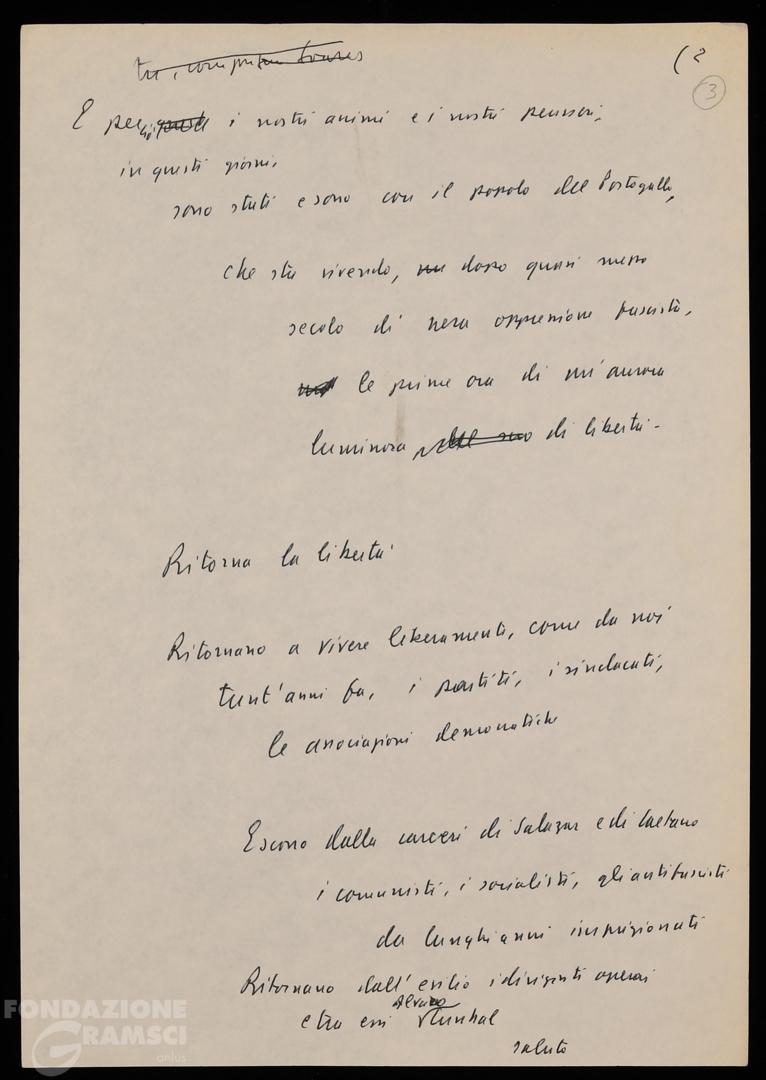 tu, compagno Soares
(2
3
E perciò i nostri animi e i nostri pensieri,
in questi giorni,
sono stati e sono con il popolo del Portogallo,
che sta vivendo, dopo quasi mezzo
secolo di nera oppressione fascista,
le prime ore di un'aurora
luminosa di libertà.
Ritorna la libertà
Ritornano a vivere liberamente, come da noi
trent'anni fa, i partiti, i sindacati,
le associazioni democratiche
Escono dalle carceri di Salazar e di Caetano
i comunisti, i socialisti, gli antifascisti
da lunghi anni imprigionati
Ritornano dall'esilio i dirigenti operai
Alvaro
e tra essi Cunhal
saluto
FONDAZIONE
GRAMSCI
onlus